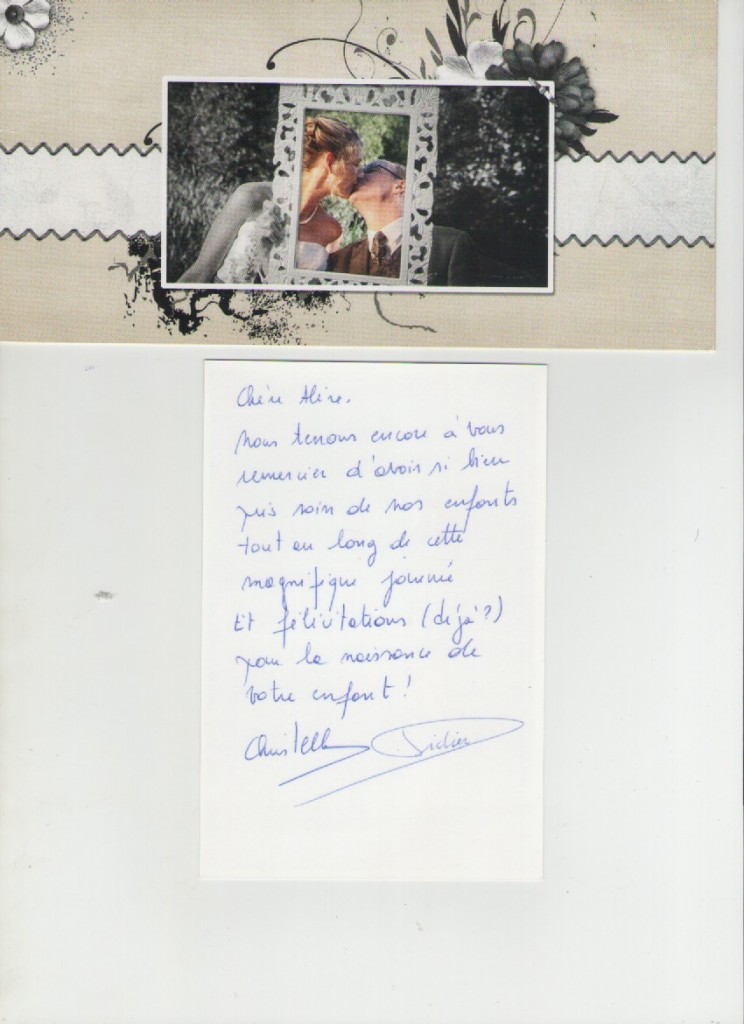 Chère Aline,
Nous tenons encore à vous
remercier d'avoir si bien
pris soin de nos enfants
tout au long de cette
magnifique journée
Et félicitations (déjà?)
pour la naissance de
votre enfant !
Christelle Didier